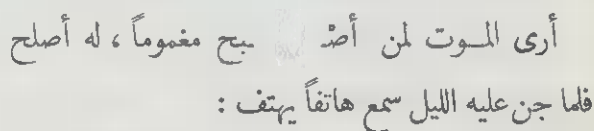 أرى الموت لمن أصـ ـبح مغموماً ، له أصلح
فلما جن عليه الليل سمع هاتفاً يهتف :